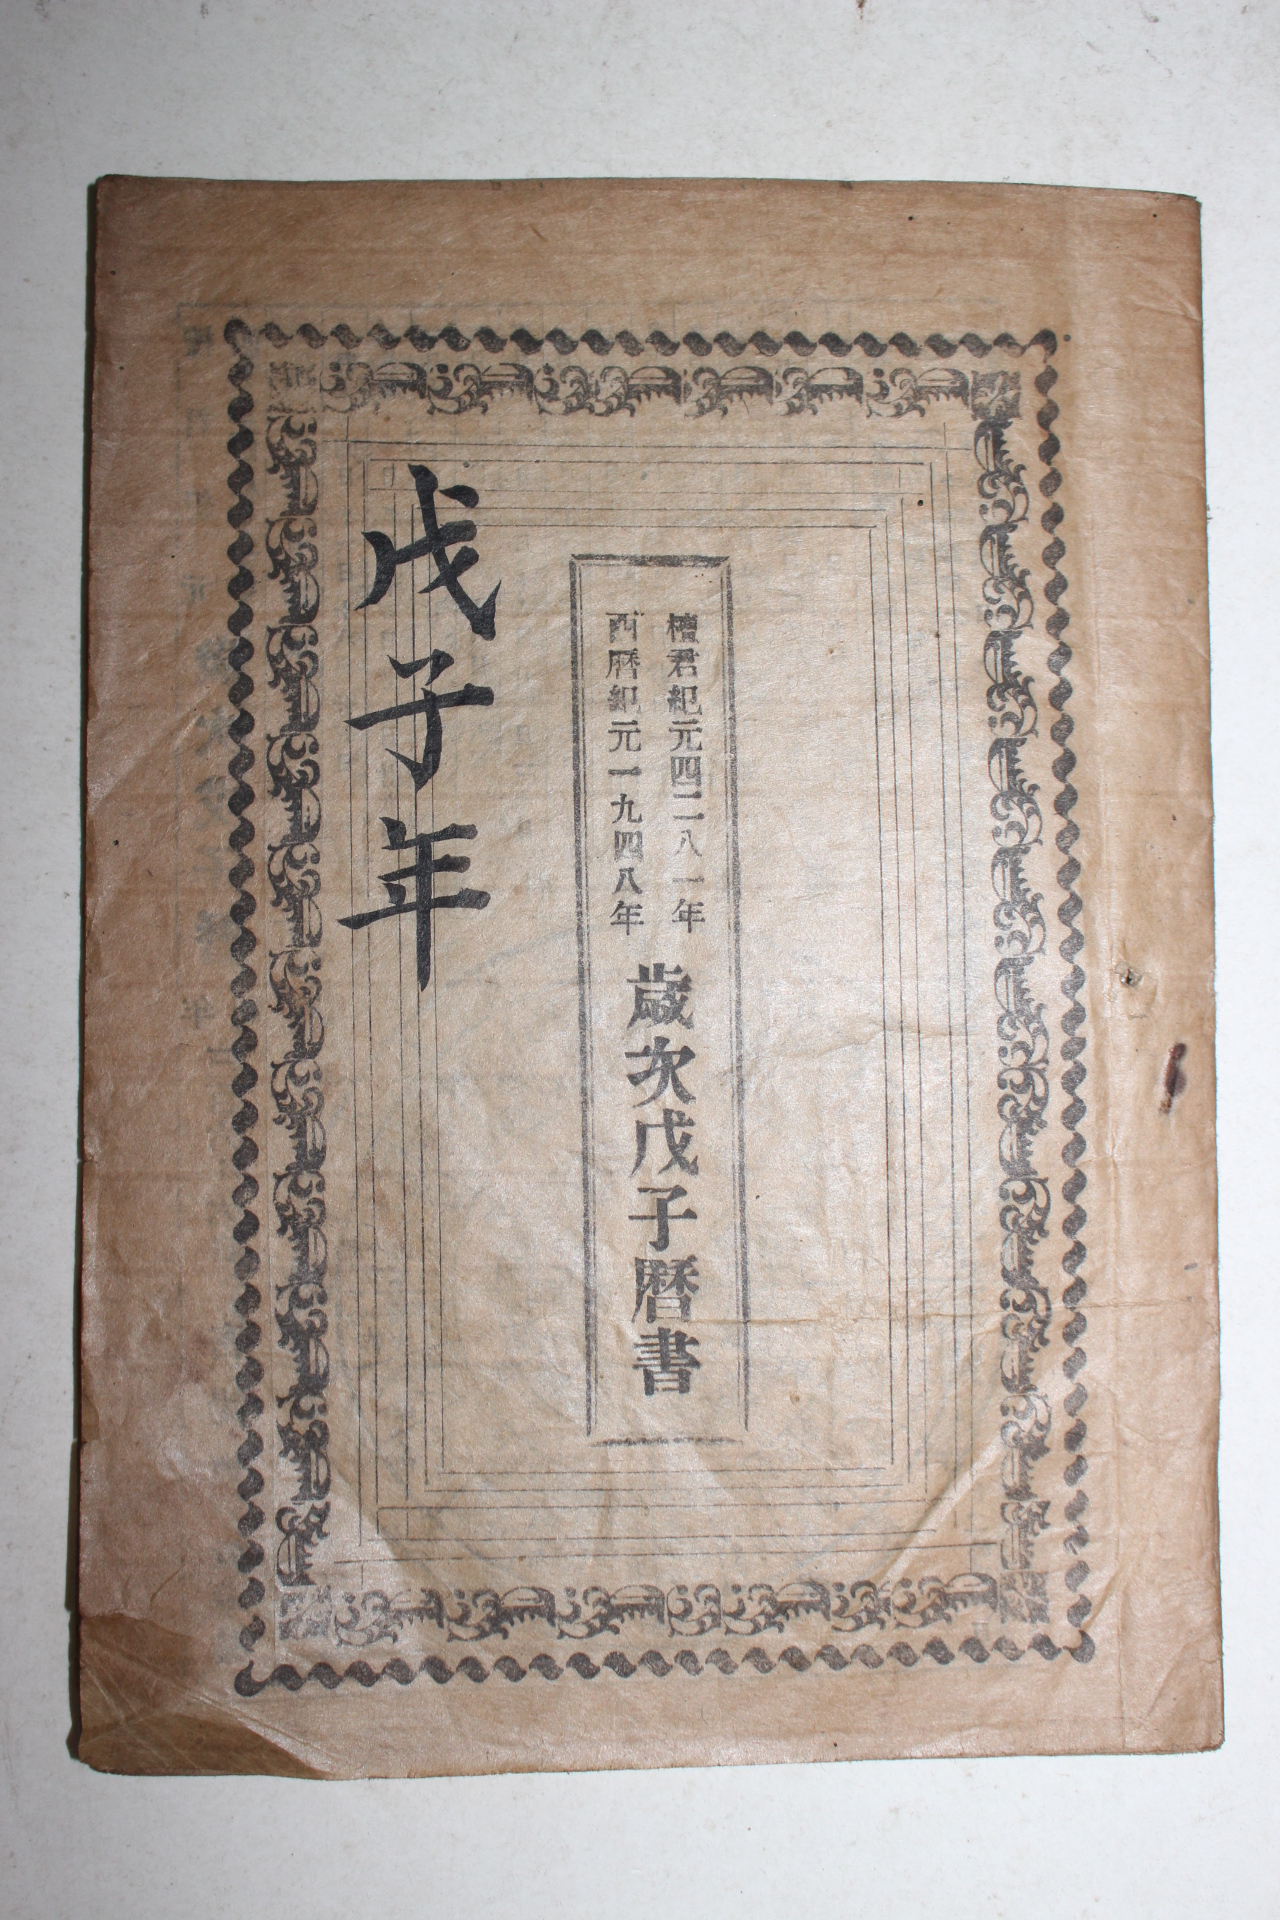 檀君紀元四二八一年
西曆紀元一九四八年
歲次戊子曆書
戊子年